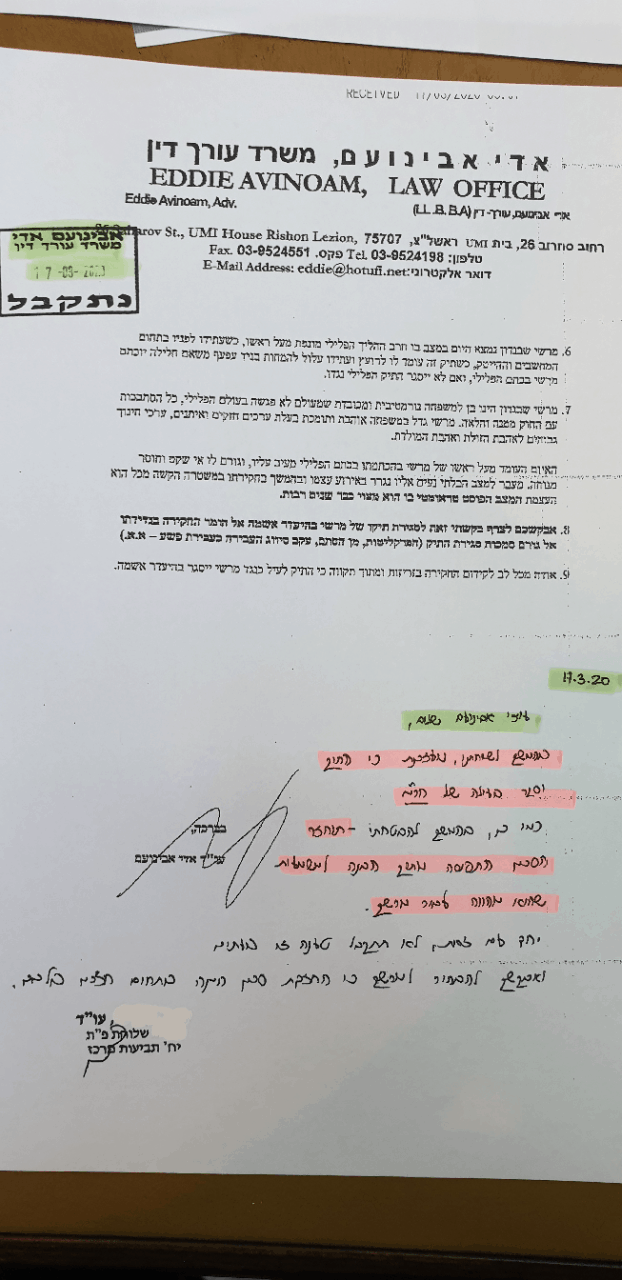 RECEIVED 17/03/2020
אדי אבינועם, משרד עורך דין
EDDIE AVINOAM, LAW OFFICE
Eddie Avinoam, Adv.
אדי אבינועם, עורך-דין (LL.B. B.A)
רחוב סחרוב 26, בית UMI ראשל"צ, 75707 Saharov St., UMI House Rishon Lezion,
טלפון: Tel. 03-9524198 פקס. Fax. 03-9524551
דואר אלקטרוני: E-Mail Address: eddie@hotufi.net
אבינועם אדי
משרד עורך דין
17-03-
נתקבל
6. מרשי שבנדון נמצא היום במצב בו חרב ההליך הפלילי מונפת מעל ראשו, כשעתידו לפניו בתחום
המחשבים וההייטק, כשתיק זה עומד לו לרועץ ועתידו עלול להמחות בניד עפעף משאם חלילה יוכתם
מרשי בכתם הפלילי, ואם לא ייסגר התיק הפלילי נגדו.
7. מרשי שבנדון הינו בן למשפחה נורמטיבית ומכובדת שמעולם לא פגשה בעולם הפלילי, כל הסתבכות
עם החוק ממנה והלאה. מרשי גדל במשפחה אוהבת ותומכת בעלת ערכים חזקים ואיתנים, ערכי חינוך
גבוהים לאהבת הזולת ואהבת המולדת.
האיום העומד מעל ראשו של מרשי בהכתמתו בכתם הפלילי מעיב עליו, וגורם לו אי שקט וחוסר
מנוחה. מעבר למצב הבלתי נעים אליו נגרר באירוע עצמו ובהמשך בחקירתו במשטרה הקשה מכל הוא
העצמת המצב הפוסט טראומטי בו הוא מצוי כבר שנים רבות.
8. אבקשכם לצרף בקשתי זאת לסגירת תיקו של מרשי בהיעדר אשמה אל חומר החקירה בניידתו
אל גורם סמכות סגירת התיק (הפרקליטות, מן הסתם, עקב סיווג העבירה כעבירת פשע – א.א.)
9. אודה מכל לב לקידום החקירה בזריזות ומתוך תקווה כי התיק לעיל כנגד מרשי ייסגר בהיעדר אשמה.
17.3.20
עו"ד אבינועם שלום,
בהמשך לשיחתנו, מעדכנת כי התיק
נסגר בעילה של חוסר
בברכה,
כמו כן, בהמשך להבטחתי - תוחזר
עו"ד אדי אבינועם
הסכין התפוסה מתוך הבנה למשמעות
שהיא מהווה עבור מרשך.
יחד עם זאת, לא תתקבל טענה זו בעתיד
ואבקשך להבהיר למרשך כי החזקת סכין הינה בתחום הבית בלבד.
עו"ד
שלוחת פ"ת
יח' תביעות מרכז